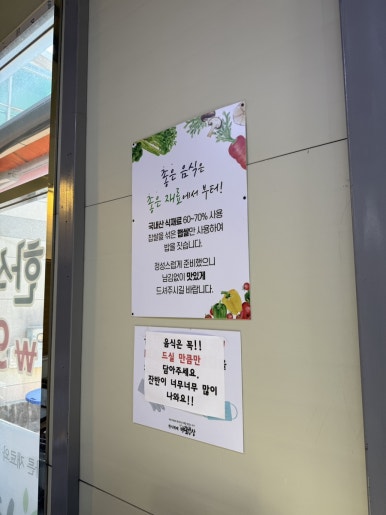 좋은 음식은
좋은 재료에서 부터!
국내산 식재료 60~70% 사용
찹쌀을 섞은 햅쌀만 사용하여
밥을 짓습니다.
정성스럽게 준비했으니
남김없이 맛있게
드셔주시길 바랍니다.
음식은 꼭!!
드실 만큼만
담아주세요.
잔반이 너무너무 많이
나와요!!
한식
₩